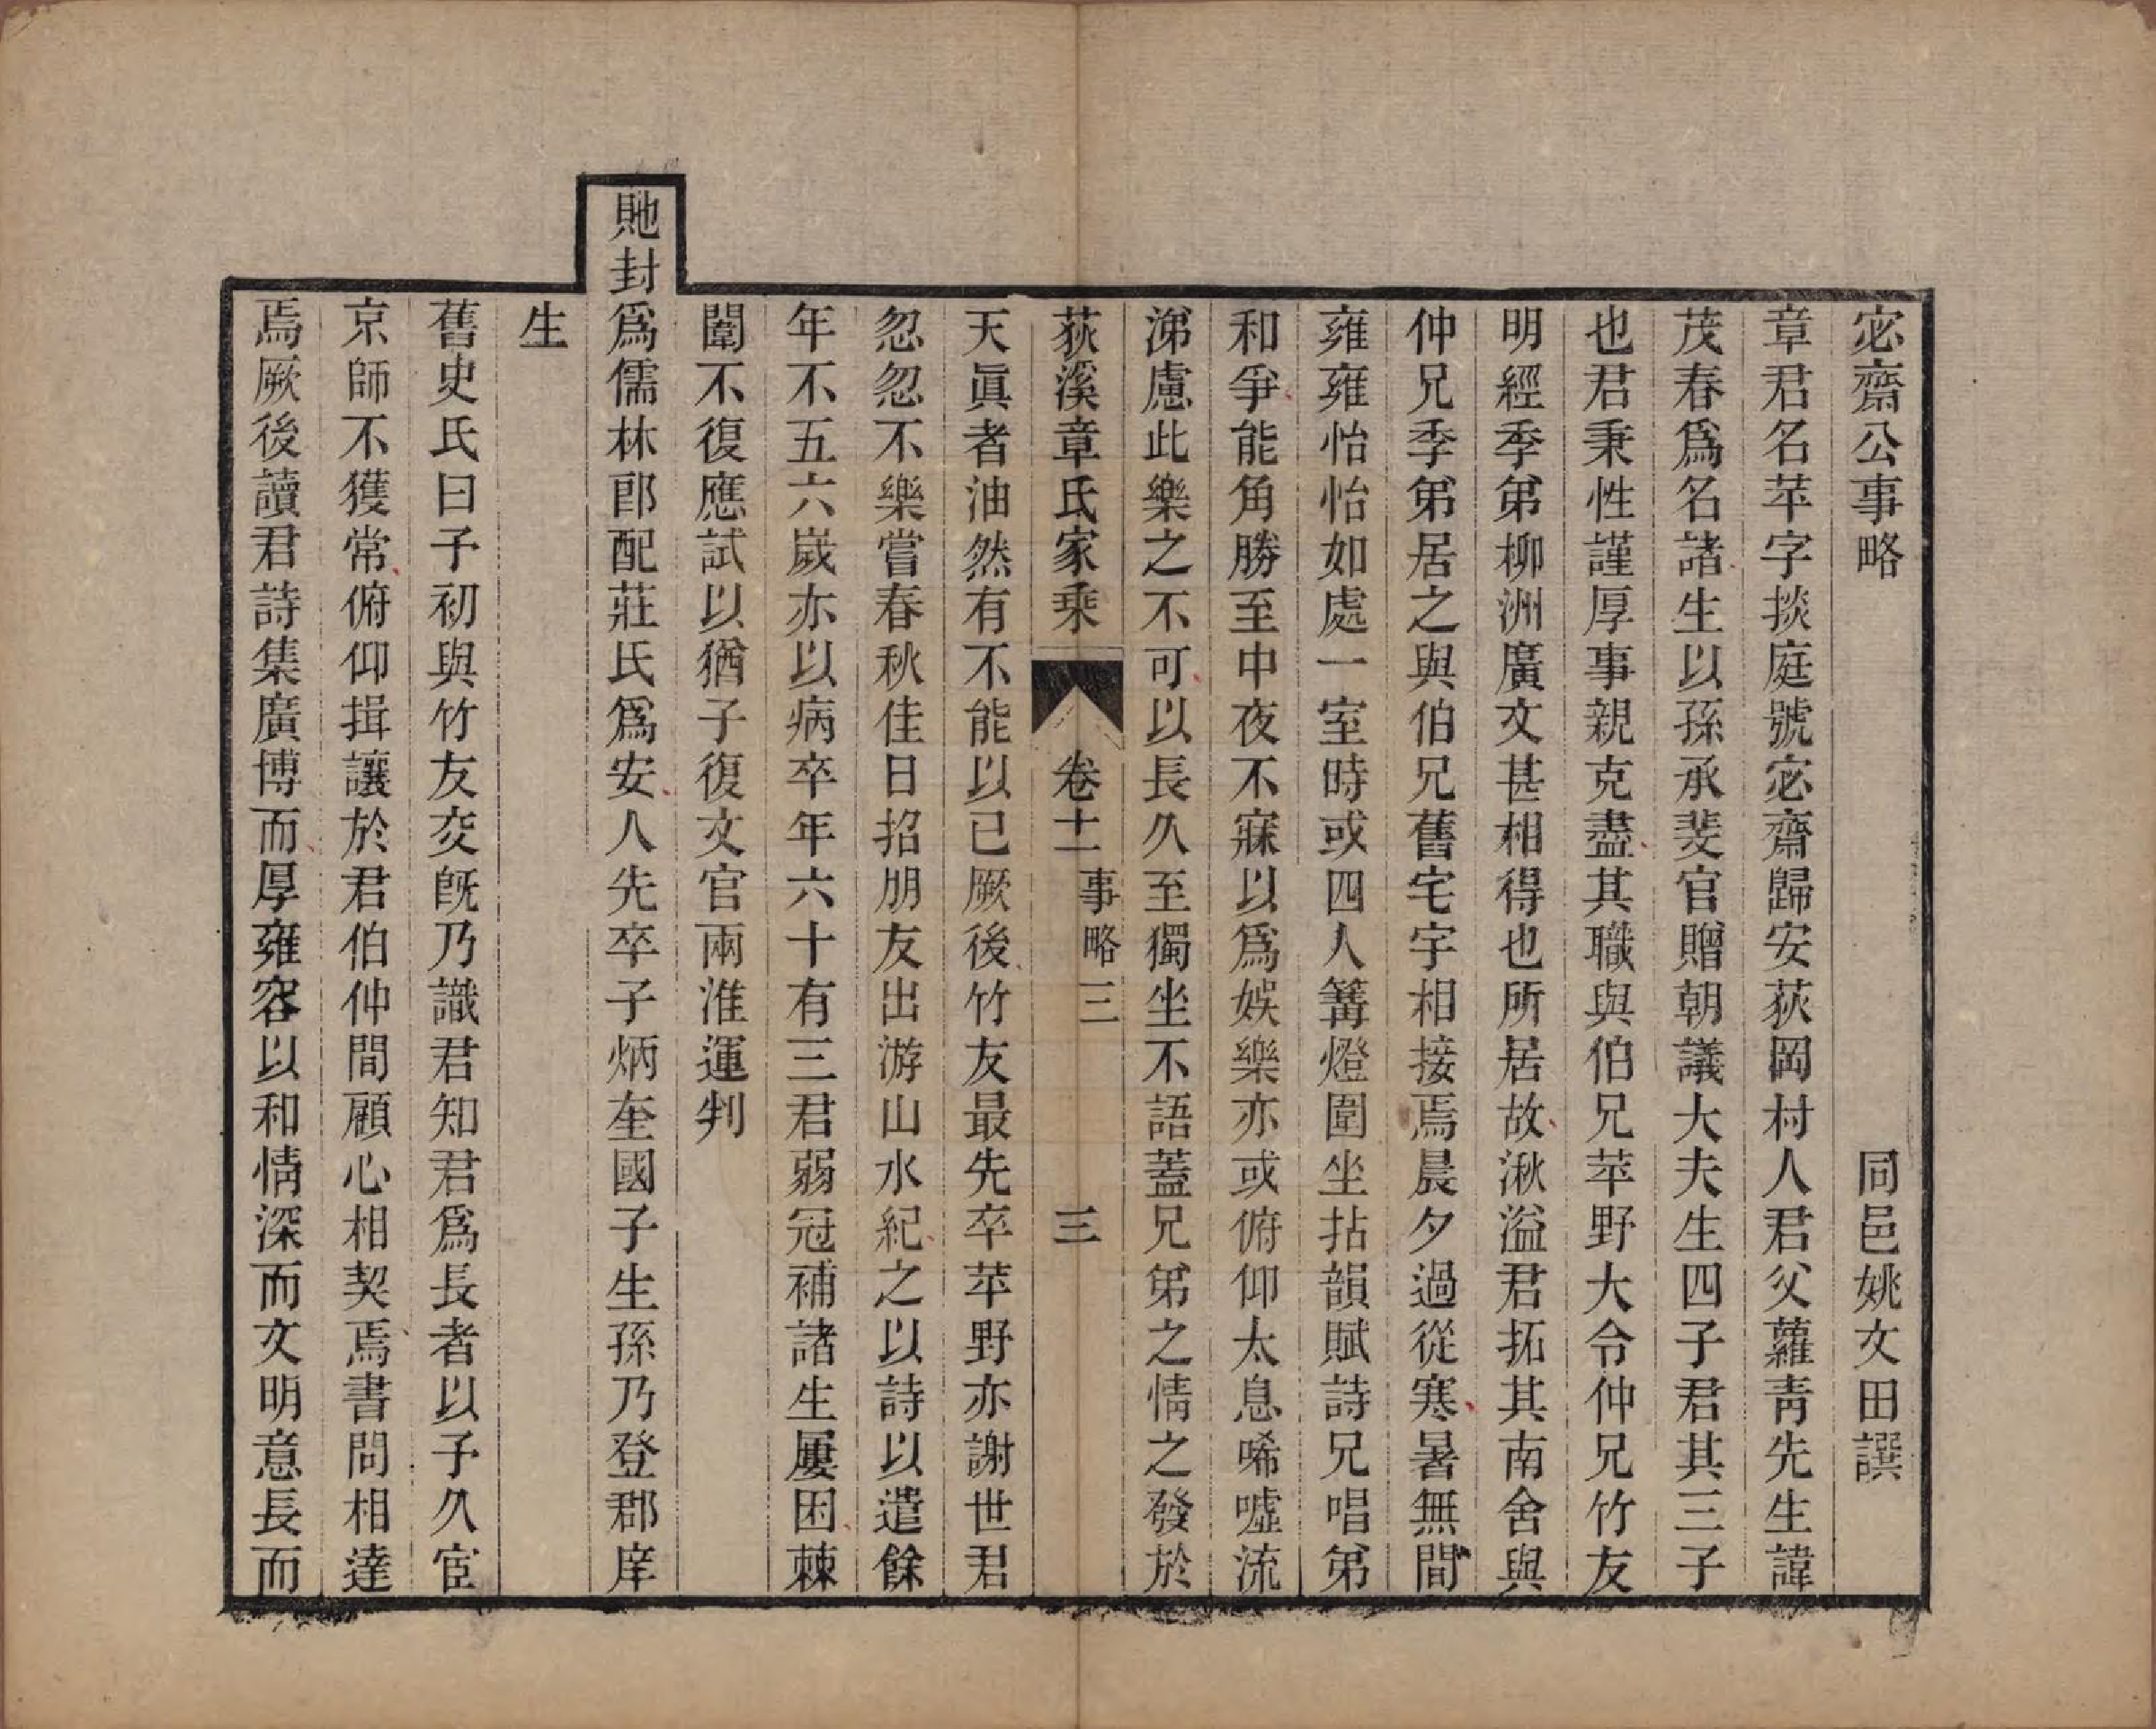 宓齋公事略　同邑姚文田譔
章君名苹字掞庭號宓齋歸安荻岡村人君父蘿靑先生諱
茂春爲名諸生以孫承斐官贈朝議大夫生四子君其三子
也君秉性謹厚事親克盡其職與伯兄苹野大令仲兄竹友
明經季弟柳洲廣文甚相得也所居故湫溢君拓其南舍與
仲兄季弟居之與伯兄舊宅宇相接焉晨夕過從寒暑無間
雍雍怡怡如處一室時或四人篝燈圍坐拈韻賦詩兄唱弟
和爭能角勝至中夜不寐以爲娛樂亦或俯仰太息唏噓流
涕慮此樂之不可以長久至獨坐不語蓋兄弟之情之發於
荻溪章氏家乘　卷十一　事略三　三
天眞者油然有不能以已厥後竹友最先卒苹野亦謝世君
忽忽不樂嘗春秋佳日招朋友出游山水紀之以詩以遣餘
年不五六歲亦以病卒年六十有三君弱冠補諸生屢困棘
闈不復應試以猶子復文官兩淮運判
貤封爲儒林郎配莊氏爲安人先卒子炳奎國子生孫乃登郡庠
生
舊史氏曰予初與竹友交旣乃識君知君爲長者以予久宦
京師不獲常俯仰揖讓於君伯仲間顧心相契焉書問相達
焉厥後讀君詩集廣博而厚雍容以和情深而文明意長而